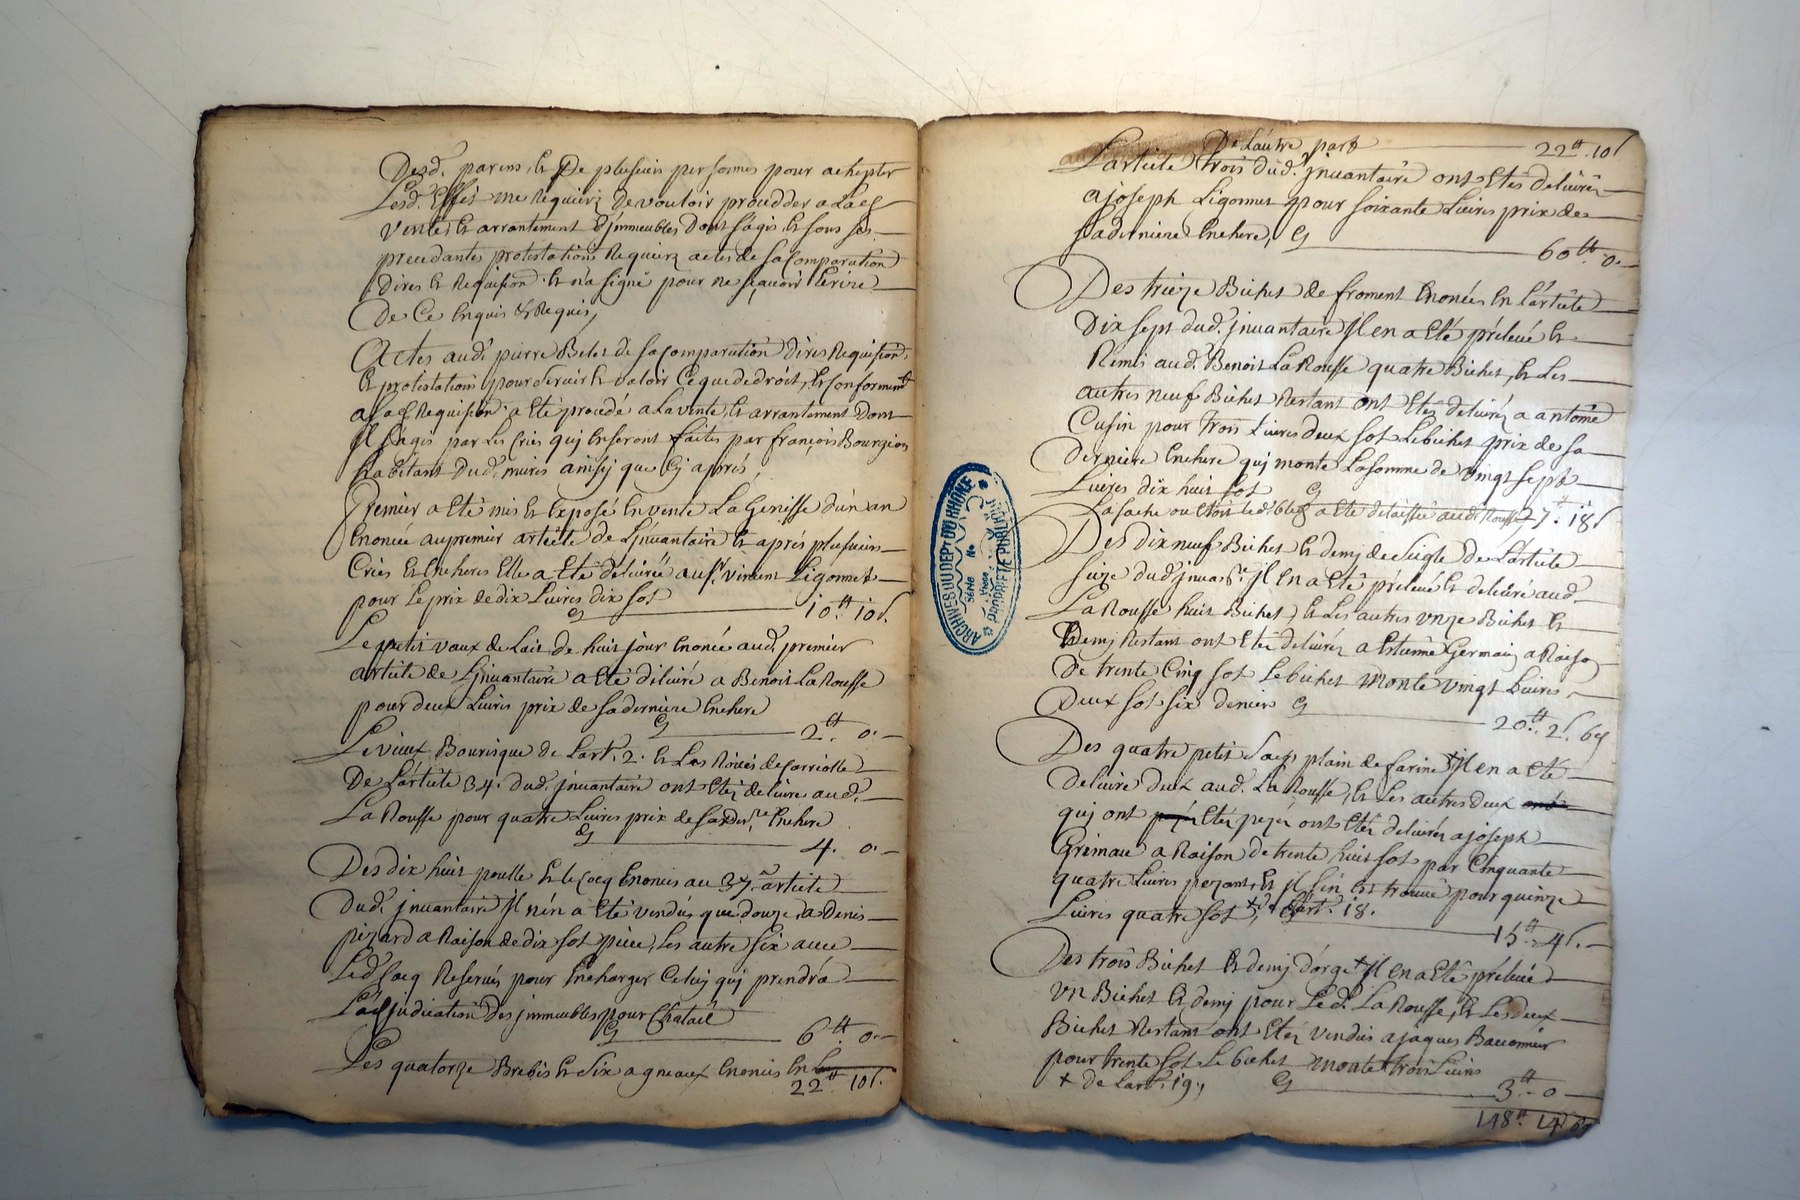 Desd. parens, et De plusieurs personnes pour achepter
Lesd. Effets me Requiert de vouloir procedder a La
vente, et arrantement d'jmmeubles Dont s'agis, et sous ses
precedantes protestations Requiert actes de sa Comparution
Dires et Requision et n'a signé pour ne sçauoir Ecrire
De Ce Enquis et Requis,
Actes aud. pierre Belet de sa Comparution Dires Requision
et protestations pour seruir et valoir Ce que de droit, et Conforment
a sa Requision a Eté procedé a La vente, et arrantement Dont
Jl s'agis par Les Cries quj En seront faites par françois Bourgion
habitant Dud. mures ainsy que Cy aprés,
Premier a Eté mis et Exposé En vente La Genisse d'un an
Enoncée au premier article de L'jnuantaire et aprés plusieurs
Cries et Encheres Elle a Eté déliurée au sr. vincent Ligonnet
pour Le prix de dix Liures dix sot
Cy 10tt. 10s.
Le petit vaux de Lait de huit jour Enonée aud. premier
article de L'jnuantaire a Eté déliuré a Benoit La Rousse
pour deux Liures prix de sa derniere Enchere
Cy 2tt. 0.
Le vieux Bourrique de L'art. 2. et Les Roües de Carriolle
De L'article 34. dud. jnuantaire ont Eté déliure aud.
La Rousse pour quatre Liures prix de sa dern.re Enchere
Cy 4. 0.
Des dix huit poulle et le Coq Enoncés au 37. article
Dud. jnuantaire Jl n'en a Eté vendus que douze, a Denis
pizard a Raison de dix sot piéce, Les autre six auec
Led. Coq Reserués pour En charger Celuy quj prendra
L'adjudication Des jmmeubles pour Chatail
Cy 6tt. 0.
Les quatorze Brebis et six agneaux Enoncés En
22tt. 10s.
De Lautre part 22tt. 10s
L'article trois dud. jnuantaire ont Etés déliurés
a joseph Ligonnet pour soixante Liures prix de
sa derniere Enchere, Cy
60tt. 0.
Des treize Bichet de froment Enonées En L'article
Dix sept dud. jnuantaire Jl en a Eté préleué et
Remis aud. Benoit La Rousse quatre Bichet, et Les
autres neuf Bichet Restant ont Etéz déliuréz a antoine
Cusin pour trois Liures deux sot Le bichet prix de sa
Derniere Enchere quj monte La somme de vingt sept
Liures dix huit sot Cy
La sache ou Etoit led. bled a Eté délaissée aud. Rousse 27tt. 18s
Des dix neuf Bichet et demj de seigle de L'article
seize dud. jnua.re Jl en a Eté préleué et déliuré aud.
La Rousse huit Bichet, et Les autres unze Bichet et
Demj Restant ont Eté déliuréz a Estienne Germain a Raison
De trente Cinq sot Le bichet Monte vingt Liures
Deux sot six denier Cy
20tt. 2s. 6d
Des quatre petit sacs plain de farine + Jl en a Eté
déliuré deux aud. La Rousse, et Les autres deux
quj ont Etéz pezez ont Etéz déliuréz a joseph
Grimaud a Raison de trente huit sot par Cinquante
quatre Liures pezant, et Jl s'en est trouué pour quinze
Liures quatre sot, + de L'art. 18.
15tt. 4s.
Des trois Bichet et demj d'orge + Jl en a Eté préleué
un Bichet et demj pour Led. La Rousse, et Les deux
Bichet Restant ont Etéz vendus a jaques Bauonnier
pour trente sot Le bichet monte trois Liures
+ de L'art. 19, Cy 3tt. 0
148tt. 14s. 6d
ARCHIVES DU DEPT DU RHÔNE
PROPRIÉTÉ PUBLIQUE